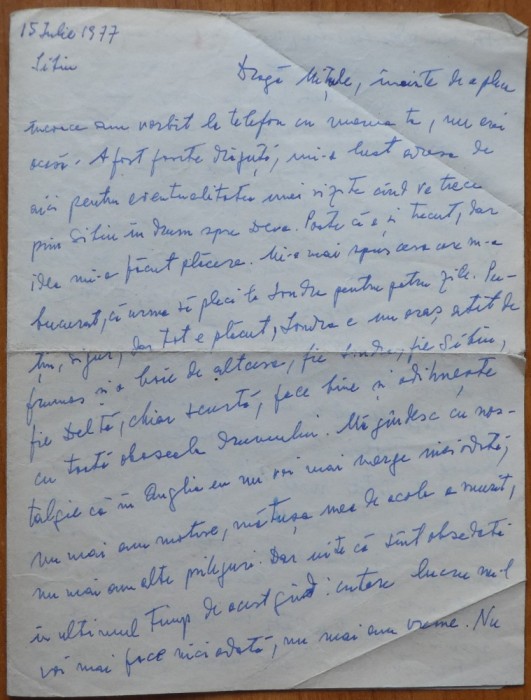 15 Iulie 1977
Sibiu
Dragă Mițule, înainte de a pleca
încoace am vorbit la telefon cu mama ta, nu erai
acasă. A fost foarte drăguță, mi-a luat adresa de
aici pentru eventualitatea unei vizite când va trece
prin Sibiu în drum spre Deva. Poate că a și trecut, dar
ideea mi-a făcut plăcere. Mi-a mai spus ceva care m-a
bucurat, că urma să pleci la Londra pentru patru zile. Pu-
țin, sigur, dar tot e plăcut, Londra e un oraș atât de
frumos și o baie de altceva, fie Londra, fie Sibiu,
fie Deltă, chiar scurtă, face bine și odihnește
cu toată oboseala drumului. Mă gândesc cu nos-
talgie că în Anglia eu nu voi mai merge niciodată,
nu mai am motive, mătușa mea de acolo a murit,
nu mai am alte prilejuri. Dar uite că sînt obsedată
în ultimul timp de acest gând: cutare lucru nu-l
voi mai face niciodată, nu mai am vreme. Nu